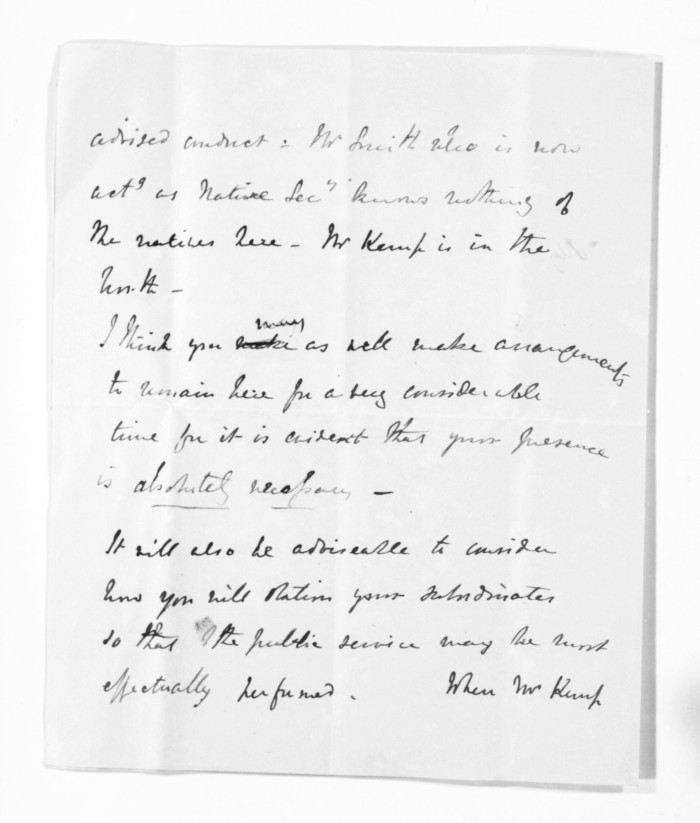 advised conduct : Mr Smith who is now
actg as Native Secy knows nothing of
the natives here – Mr Kemp is in the
North –
may
I think you make as well make arrangements
to remain here for a very considerable
time for it is evident that your presence
is absolutely necessary –
It will also be adviseable to consider
how you will station your subordinates
so that the public service may be most
effectually performed. When Mr Kemp